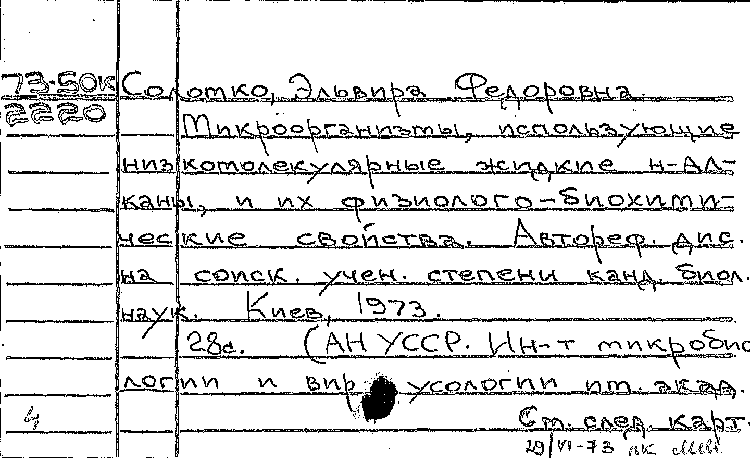 73-50К Солотко, Эльвира Федоровна.
2220
Микроорганизмы, использующие
низкомолекулярные жидкие н-ал-
каны, и их физиолого-биохими-
ческие свойства. Автореф. дис.
на соиск. учен. степени канд. биол.
наук. Киев, 1973.
28с. (АН УССР. Ин-т микробио
логии и вирусологии им. акад.
См. след. карт.
29/VI-73 пк